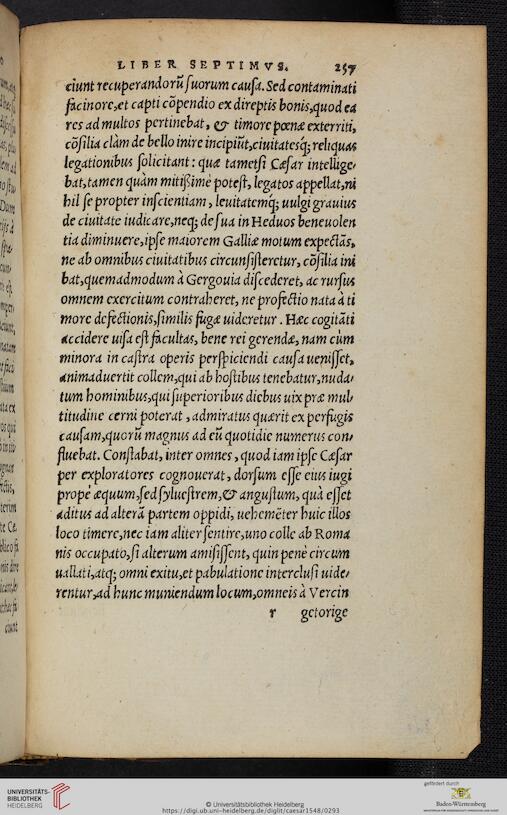 LIBER SEPTIMVS. 257
ciunt recuperandorũ ſuorum cauſa. Sed contaminati
facinore, et capti cõpendio ex direptis bonis, quod ea
res ad multos pertinebat, & timore pœnæ exterriti,
cõſilia clàm de bello inire incipiũt, ciuitatesq́; reliquas
legationibus ſolicitant: quæ tametſi Cæſar intellige-
bat, tamen quàm mitißimè poteſt, legatos appellat, ni
hil ſe propter inſcientiam, leuitatemq́; uulgi grauius
de ciuitate iudicare, neq; de ſua in Heduos beneuolen
tia diminuere, ipſe maiorem Galliæ motum expectãs,
ne ab omnibus ciuitatibus circunſiſteretur, cõſilia ini
bat, quemadmodum à Gergouia diſcederet, ac rurſus
omnem exercitum contraheret, ne profectio nata à ti
more defectionis, ſimilis fugæ uideretur. Hæc cogitãti
accidere uiſa eſt facultas, bene rei gerendæ, nam cùm
minora in caſtra operis perſpiciendi cauſa ueniſſet,
animaduertit collem, qui ab hoſtibus tenebatur, nuda-
tum hominibus, qui ſuperioribus diebus uix præ mul-
titudine cerni poterat, admiratus quærit ex perfugis
cauſam, quorũ magnus ad eũ quotidie numerus con-
fluebat. Conſtabat, inter omnes, quod iam ipſe Cæſar
per exploratores cognouerat, dorſum eſſe eius iugi
propè æquum, ſed ſylueſtrem, & anguſtum, quà eſſet
aditus ad alterã partem oppidi, uehemẽter huic illos
loco timere, nec iam aliter ſentire, uno colle ab Roma
nis occupato, ſi alterum amiſiſſent, quin penè circum
uallati, atq; omni exitu, et pabulatione intercluſi uide-
rentur, ad hunc muniendum locum, omneis à Vercin
r getorige
ciunt
UNIVERSITÄTS-
BIBLIOTHEK
HEIDELBERG
© Universitätsbibliothek Heidelberg
https://digi.ub.uni-heidelberg.de/diglit/caesar1548/0293
gefördert durch
Baden-Württemberg